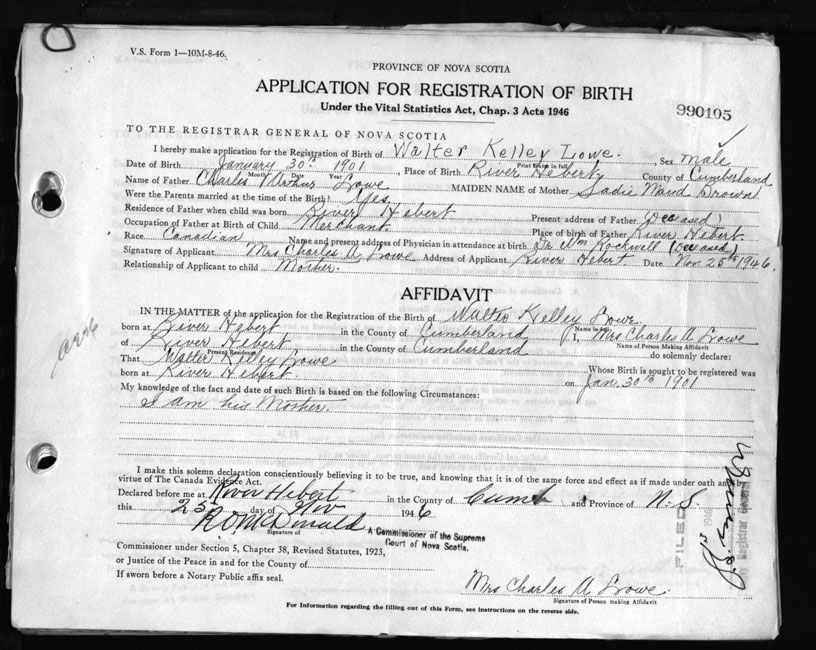 V.S. Form 1—10M-8-46.
PROVINCE OF NOVA SCOTIA
APPLICATION FOR REGISTRATION OF BIRTH
Under the Vital Statistics Act, Chap. 3 Acts 1946
990105
TO THE REGISTRAR GENERAL OF NOVA SCOTIA
I hereby make application for the Registration of Birth of Walter Kelley Lowe. Sex Male
Print name in full
Date of Birth January 30th 1901 Place of Birth River Hebert County of Cumberland
Month Date Year
Name of Father Charles Arthur Lowe MAIDEN NAME of Mother Sadie Maud Brown
Were the Parents married at the time of the Birth? Yes.
Residence of Father when child was born River Hebert Present address of Father (Deceased)
Occupation of Father at Birth of Child Merchant Place of birth of Father River Hebert.
Race Canadian Name and present address of Physician in attendance at birth Dr. Wm Rockwell (Deceased)
Signature of Applicant Mrs Charles A. Lowe Address of Applicant River Hebert Date Nov. 25th 1946.
Relationship of Applicant to child Mother.
AFFIDAVIT
IN THE MATTER of the application for the Registration of the Birth of Walter Kelley Lowe
Name in full
born at River Hebert in the County of Cumberland I, Mrs Charles A Lowe
Name of Person Making Affidavit
of River Hebert in the County of Cumberland do solemnly declare:
Present Residence
That Walter Kelley Lowe Whose Birth is sought to be registered was
born at River Hebert. on Jan. 30th 1901
My knowledge of the fact and date of such Birth is based on the following Circumstances:
I am his Mother.
I make this solemn declaration conscientiously believing it to be true, and knowing that it is of the same force and effect as if made under oath and by
virtue of The Canada Evidence Act.
Declared before me at River Hebert in the County of Cumb and Province of N. S
this 25 day of Nov 1946
Signature of
A Commissioner of the Supreme
Court of Nova Scotia.
FILED
Commissioner under Section 5, Chapter 38, Revised Statutes, 1923,
or Justice of the Peace in and for the County of
If sworn before a Notary Public affix seal.
Mrs Charles A Lowe.
Signature of Person making Affidavit
For Information regarding the filling out of this Form, see instructions on the reverse side.